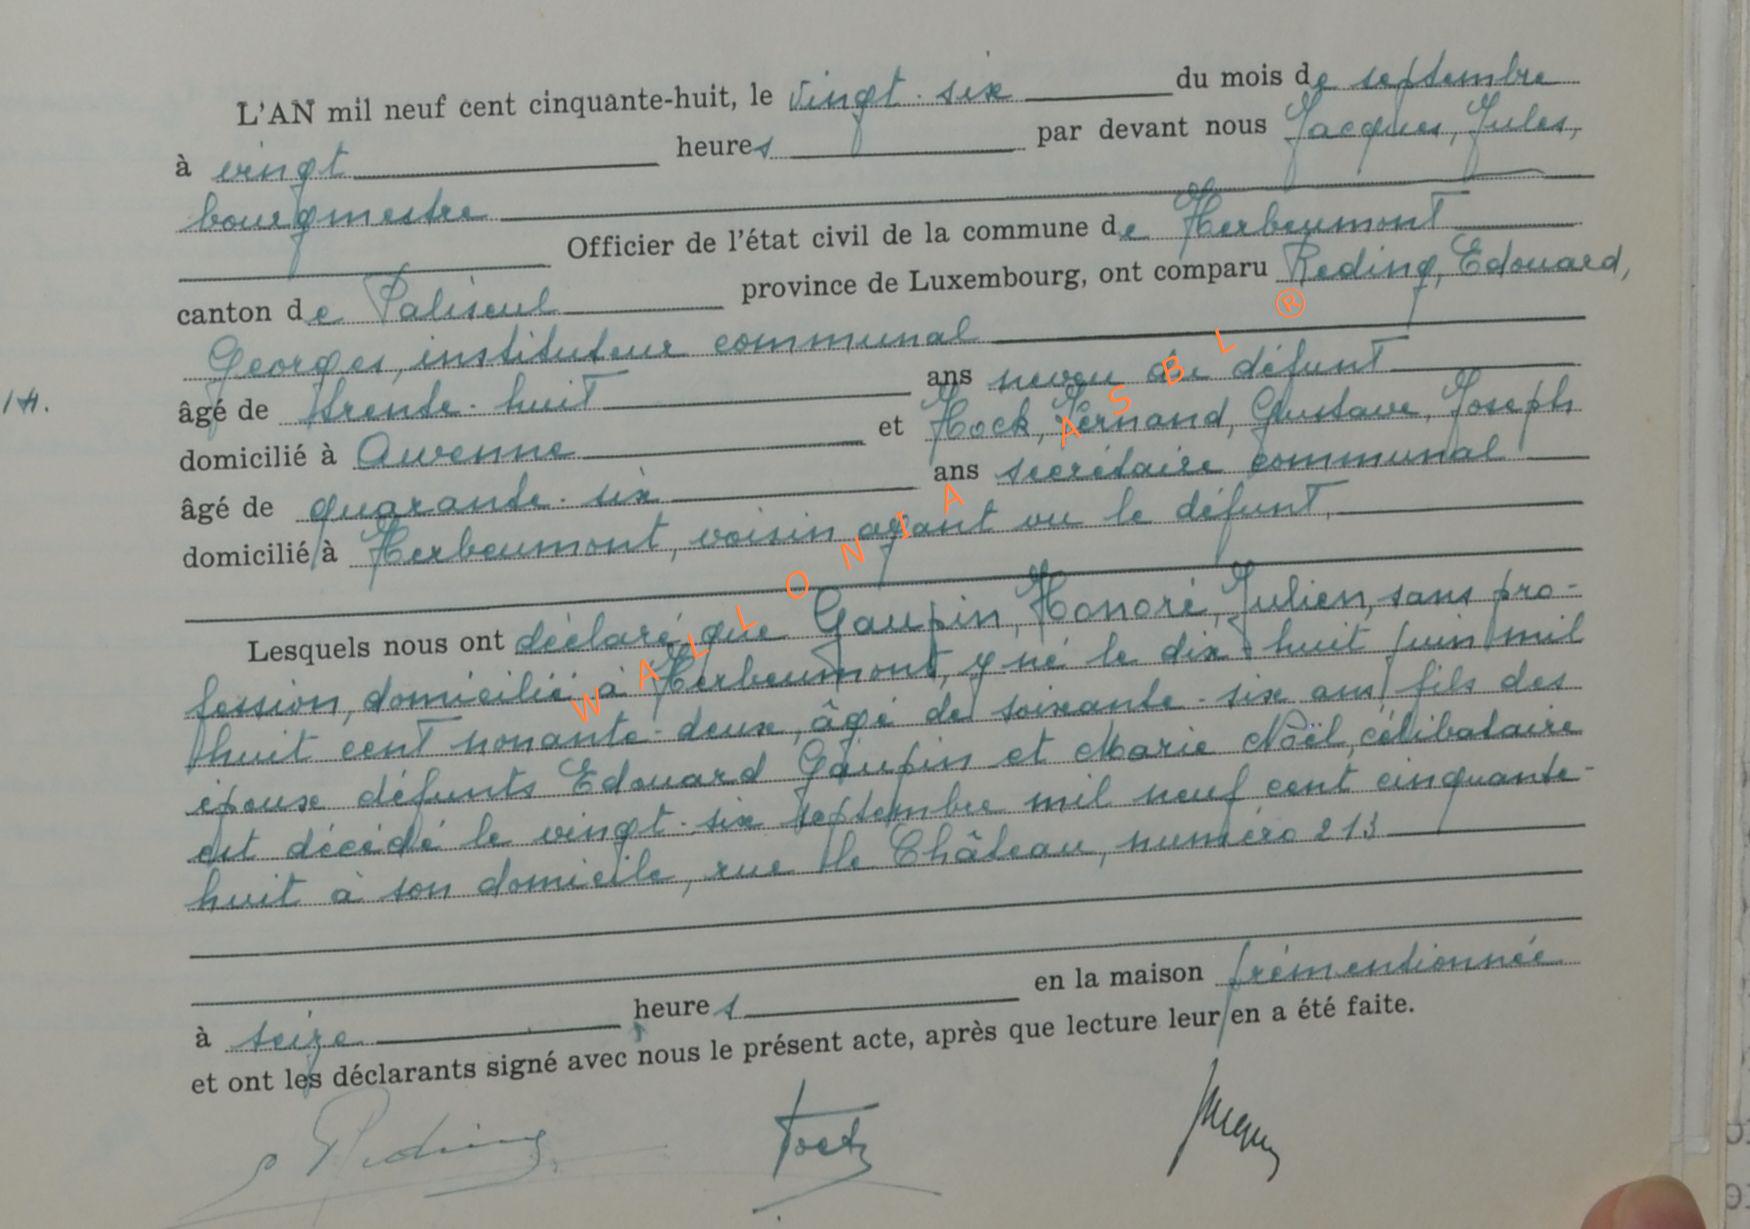 L'AN mil neuf cent cinquante-huit, le vingt-six du mois de septembre
à vingt heures par devant nous Jacques, Jules,
bourgmestre
Officier de l'état civil de la commune de Herbeumont
canton de Paliseul province de Luxembourg, ont comparu Reding, Edouard,
Georges, instituteur communal
14.
âgé de trente-huit ans neveu du défunt
domicilié à Awenne et Hock, Fernand, Gustave, Joseph
âgé de quarante-six ans secrétaire communal
domicilié à Herbeumont, voisin ayant vu le défunt,
Lesquels nous ont déclaré que Gaupin, Honoré, Julien, sans pro-
fession, domicilié à Herbeumont, y né le dix-huit juin mil
huit cent nonante-deux, âgé de soixante-six ans, fils des
époux défunts Edouard Gaupin et Marie Noël, célibataire
est décédé le vingt-six septembre mil neuf cent cinquante-
huit à son domicile, rue le Château, numéro 213
à seize heures en la maison prémentionnée
et ont les déclarants signé avec nous le présent acte, après que lecture leur en a été faite.
Reding Jacques
WALLONIA ASBL ®